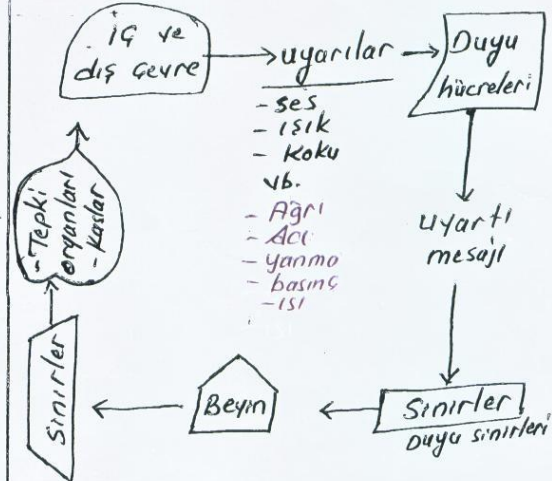 İÇ ve
dış çevre
uyarılar
- ses
- ışık
- koku
vb.
- Ağrı
- Acı
- yanma
- basınç
- ısı
Duyu
hücreleri
uyartı
mesajı
Sinirler
Duyu sinirleri
Beyin
Sinirler
- Tepki
organları
- kaslar